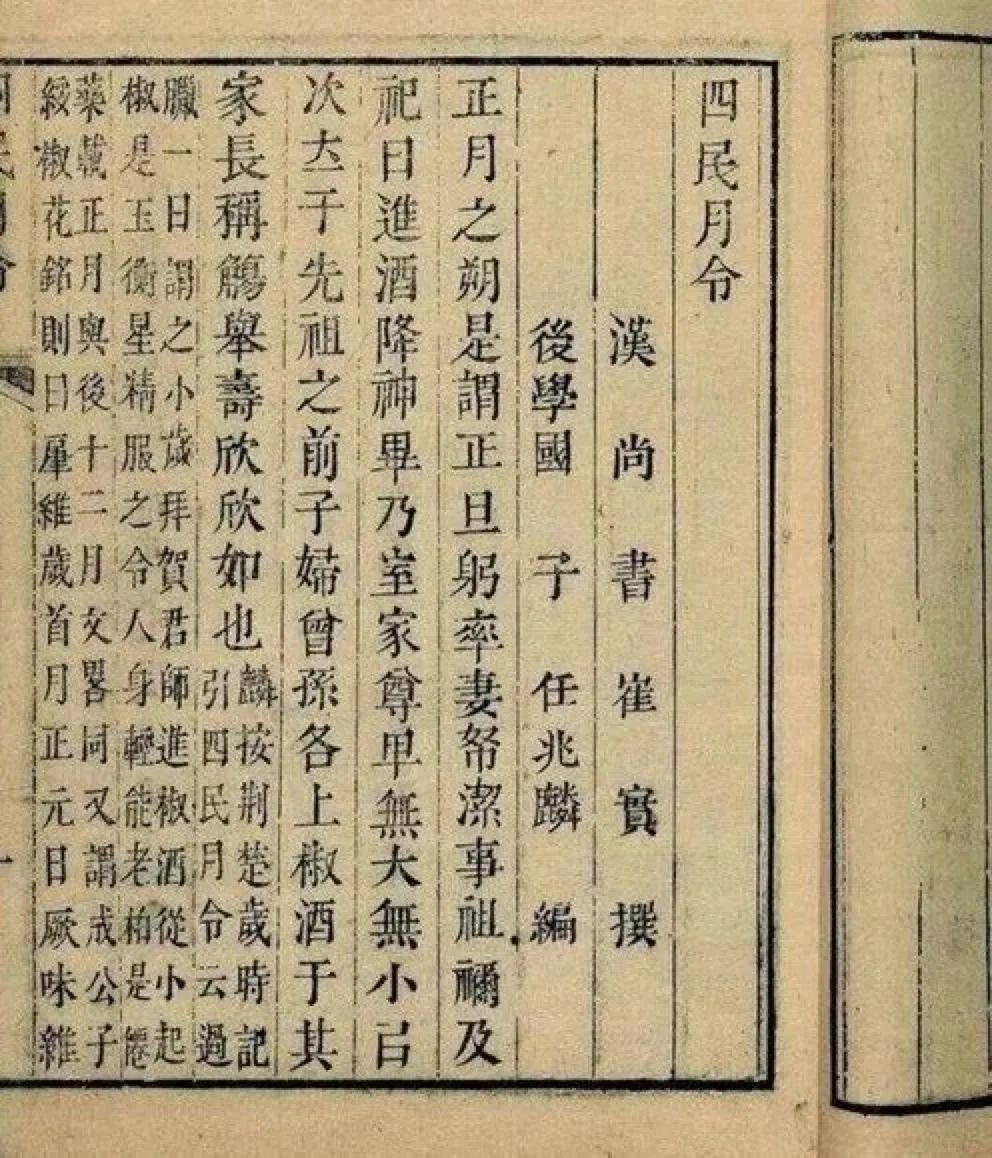 四民月令
漢尚書崔寔撰
後學國子任兆麟編
正月之朔是謂正旦躬率妻帑潔事祖禰及
祀日進酒降神畢乃室家尊卑無大無小㠯
次𠀤于先祖之前子婦曾孫各上椒酒于其
家長稱觴舉壽欣欣如也
麟按荆楚歲時記
引四民月令云過
臘一日謂之小歲拜賀君師進椒酒從小起
椒是玉衡星精服之令人身輕能老柏是
藥載正月與後十二月文畧同又謂成公子
綏椒花銘則曰肇維歲首月正元日厥味維